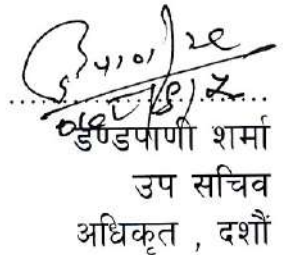 डण्डपाणी शर्मा
उप सचिव
अधिकृत , दशौं